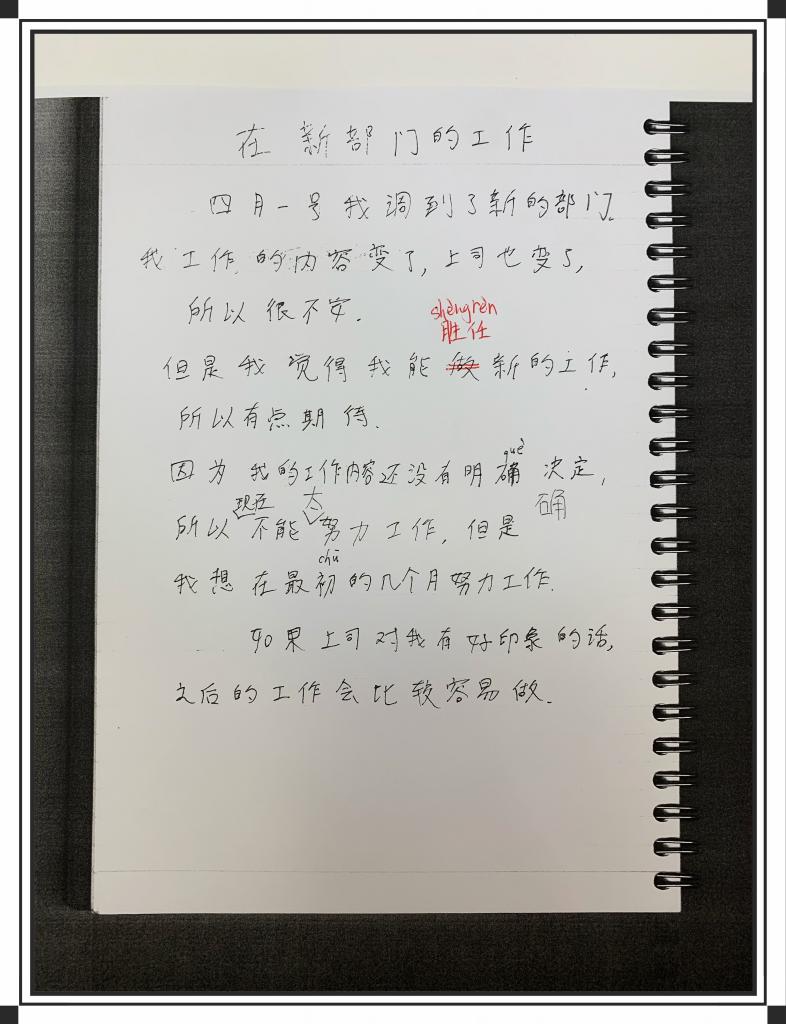 在新部门的工作
四月一号我调到了新的部门。
我工作的内容变了,上司也变了,
所以很不安.
shèngrèn
胜任
但是我觉得我能做新的工作,
所以有点期待.
què
因为我的工作内容还没有明确决定,
现在 太 确
所以不能努力工作,但是
chū
我想在最初的几个月努力工作.
如果上司对我有好印象的话,
之后的工作会比较容易做.